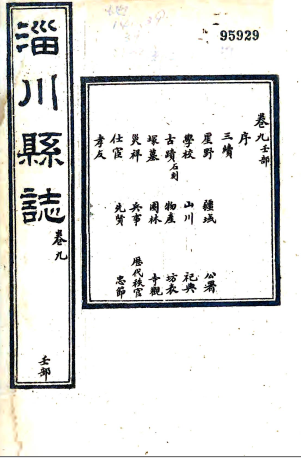 95929
淄川縣誌
卷九
壬部
卷九壬部
序
三續
星野 疆域 公署
學校 山川 祀典
古蹟石刻 物產 坊表
塚墓 園林 寺觀
災祥 兵事 歷代秩官
仕宦 先賢 忠節
孝友